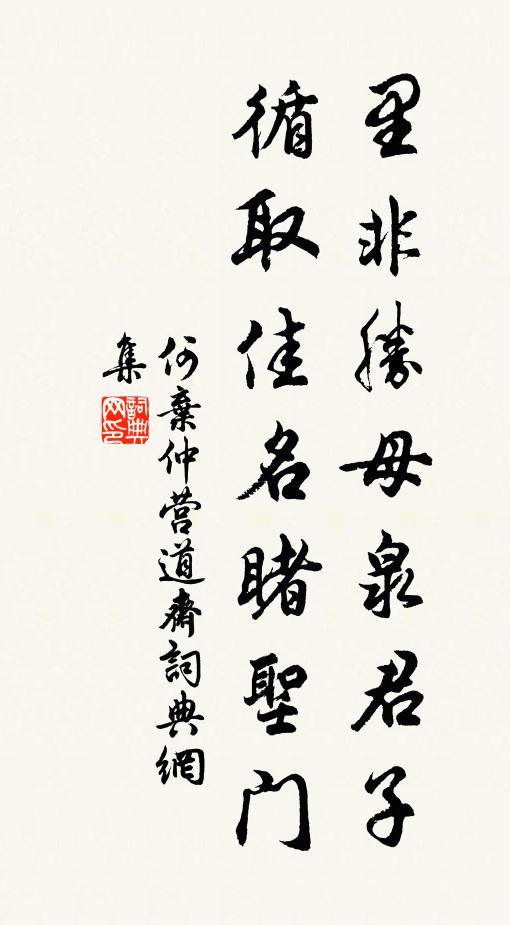 里非勝母泉君子
循取佳名睹聖門
何棄仲营道齋詞典網
集
詞典
网印